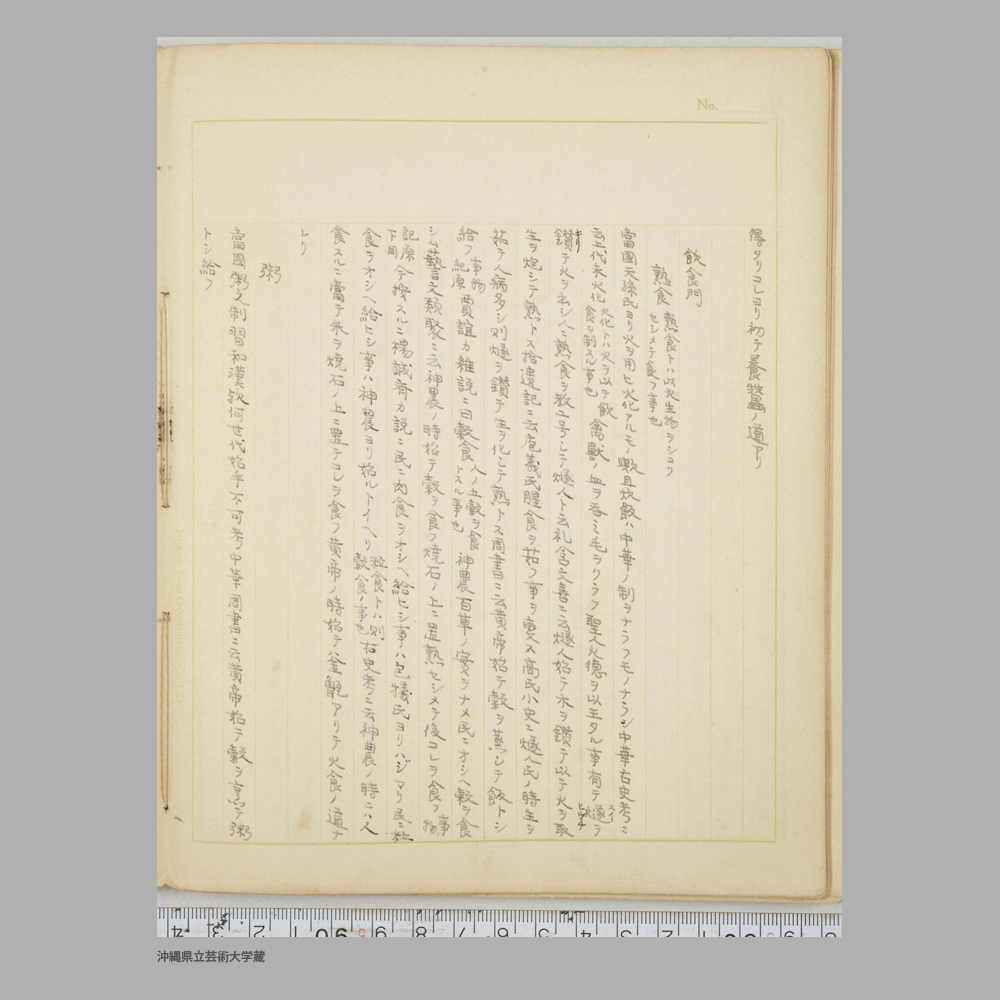 No.
得タリコレヨリ初テ養蚕ノ道アリ
飲食門
熟食 熟食トハ以火生物ヲシコリセシメテ食フ事也
當國天孫氏ヨリ火ヲ用ヒ火化アルモノ歟且炊飯ハ中華ノ制ヲナラフモノナラン中華古史考ニ
云上代未火化 火化トハ火ヲ以テ飲食ヲ制スル事也 禽獣ノ血ヲ呑ミ毛ヲクラフ聖人火德ヲ以王タル事有テ燧ヲ
鑚テ火ヲ出シ人ニ熟食ヲ教ユ号シテ燧人ト云礼含文嘉ニ云燧人始テ木ヲ鑚テ以テ火ヲ取
生ヲ炮シテ熟トス拾遺記ニ云庖羲氏腥食ヲ茹フ事ヲ変ス高氏小史ニ燧人氏ノ時生ヲ
茹テ人病多シ則燧ヲ鑚テ生ヲ化シテ熟トス周書ニ云黄帝始テ穀ヲ蒸シテ飯トシ
給フ 事物紀原 賈誼カ雑説ニ曰穀食 人ノ五穀ヲ食トスル事也 神農百草ノ実ヲナメ民ニオシヘ穀ヲ食
シム藝文類聚ニ云神農ノ時始テ穀ヲ食フ焼石ノ上ニ置熟セシメテ後コレヲ食フ 事物
記原下同 今按スルニ楊誠斎カ説ニ民ニ肉食ヲオシヘ給ヒシ事ハ包犠氏ヨリハジマリ民ニ粒
食ヲオシヘ給ヒシ事ハ神農ヨリ始ルトイヘリ 粒食トハ則穀食ノ事也 古史考ニ云神農ノ時ニハ人
食スルニ當テ米ヲ焼石ノ上ニ置テコレヲ食フ黄帝ノ時始テ釜甑アリテ火食ノ道ナ
レリ
粥
當國粥之制習和漢欤何世代始乎不可考中華周書ニ云黄帝始テ穀ヲ烹テ粥
トシ給フ
沖縄県立芸術大学蔵